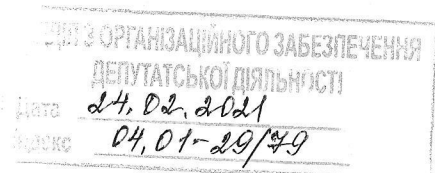 З ОРГАНІЗАЦІЙНОГО ЗАБЕЗПЕЧЕННЯ
ДЕПУТАТСЬКОЇ ДІЯЛЬНОСТІ
Дата 24.02.2021
04.01-29/79